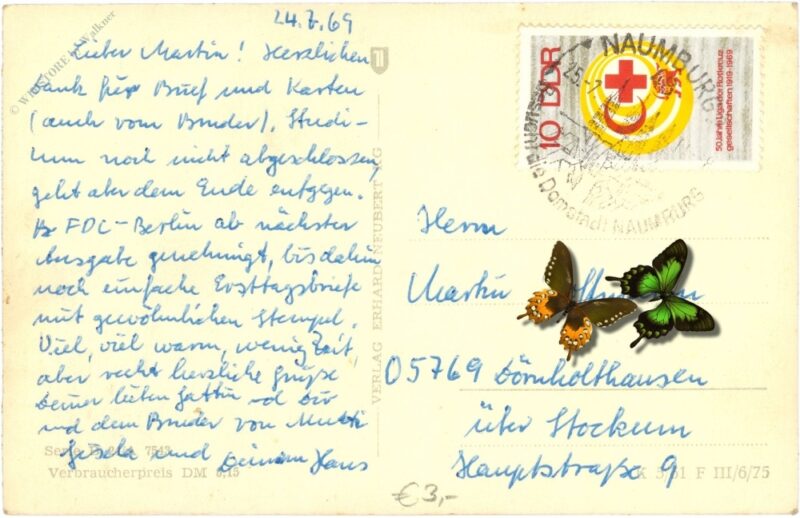 24.7.69
Lieber Martin! Herzlichen
Dank für Brief und Karten
(auch vom Bruder). Studi-
um noch nicht abgeschlossen,
geht aber dem Ende entgegen.
FDC-Berlin ab nächster
Ausgabe genehmigt, bis dahin
noch einfache Ersttagsbriefe
mit gewöhnlichen Stempel.
Viel, viel warm, wenig Zeit
aber recht herzliche Grüße
Deiner lieben Gattin Dir
und dem Bruder von Mutti
Gisela und Deinem Hans
Verbraucherpreis DM 0,15
VERLAG ERHARD NEUBERT
10 DDR
50 Jahre Liga der Rotkreuz
gesellschaften, 1919-1969
NAUMBURG
25.-7
die Domstadt NAUMBURG
Herrn
Martin
05769 Dörnholthausen
über Stockum
Hauptstraße 9
F III/6/75
€ 3,-
© Walkner